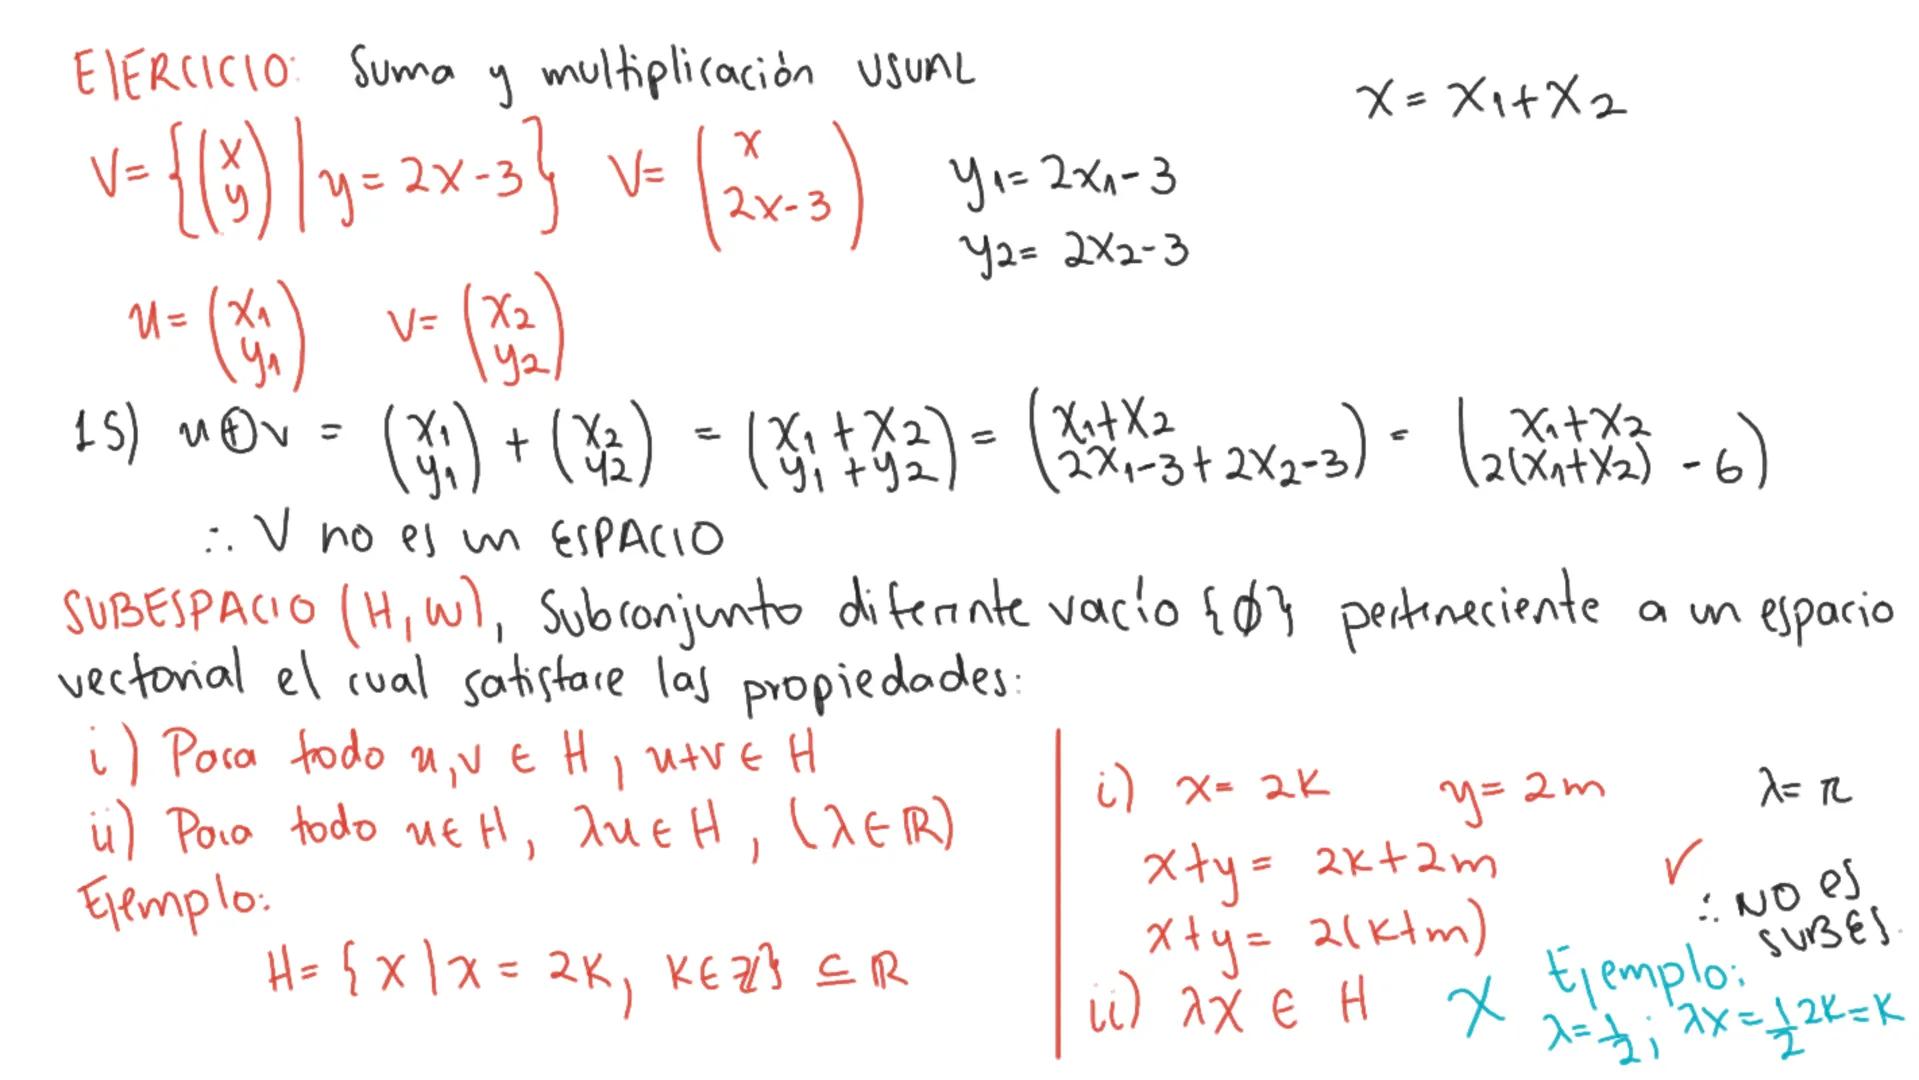 EJERCICIO: Suma y multiplicación USUAL
x = x₁+x₂
V= {(x y) | y = 2x-3} V= (x 2x-3)
y₁= 2x₁-3
y₂= 2x₂-3
u= (x₁ y₁) v= (x₂ y₂)
1S) u⊕v = (x₁ y₁) + (x₂ y₂) = (x₁+x₂ y₁+y₂) = (x₁+x₂ 2x₁-3+2x₂-3) = (x₁+x₂ 2(x₁+x₂) -6)
∴ V no es un ESPACIO
SUBESPACIO (H,W), Subconjunto diferente vacío {∅} perteneciente a un espacio
vectorial el cual satisface las propiedades:
i) Para todo u,v ∈ H, u+v ∈ H
ii) Para todo u∈H, λu∈H, (λ∈ℝ)
Ejemplo:
H= {x | x = 2K, K∈ℤ} ⊆ ℝ
i) x= 2K y= 2m
x+y= 2K+2m ✓
x+y= 2(K+m)
ii) λx ∈ H X
λ= π
∴ NO es
SUBES.
Ejemplo:
λ=1/2; λx = 1/2 2K=K